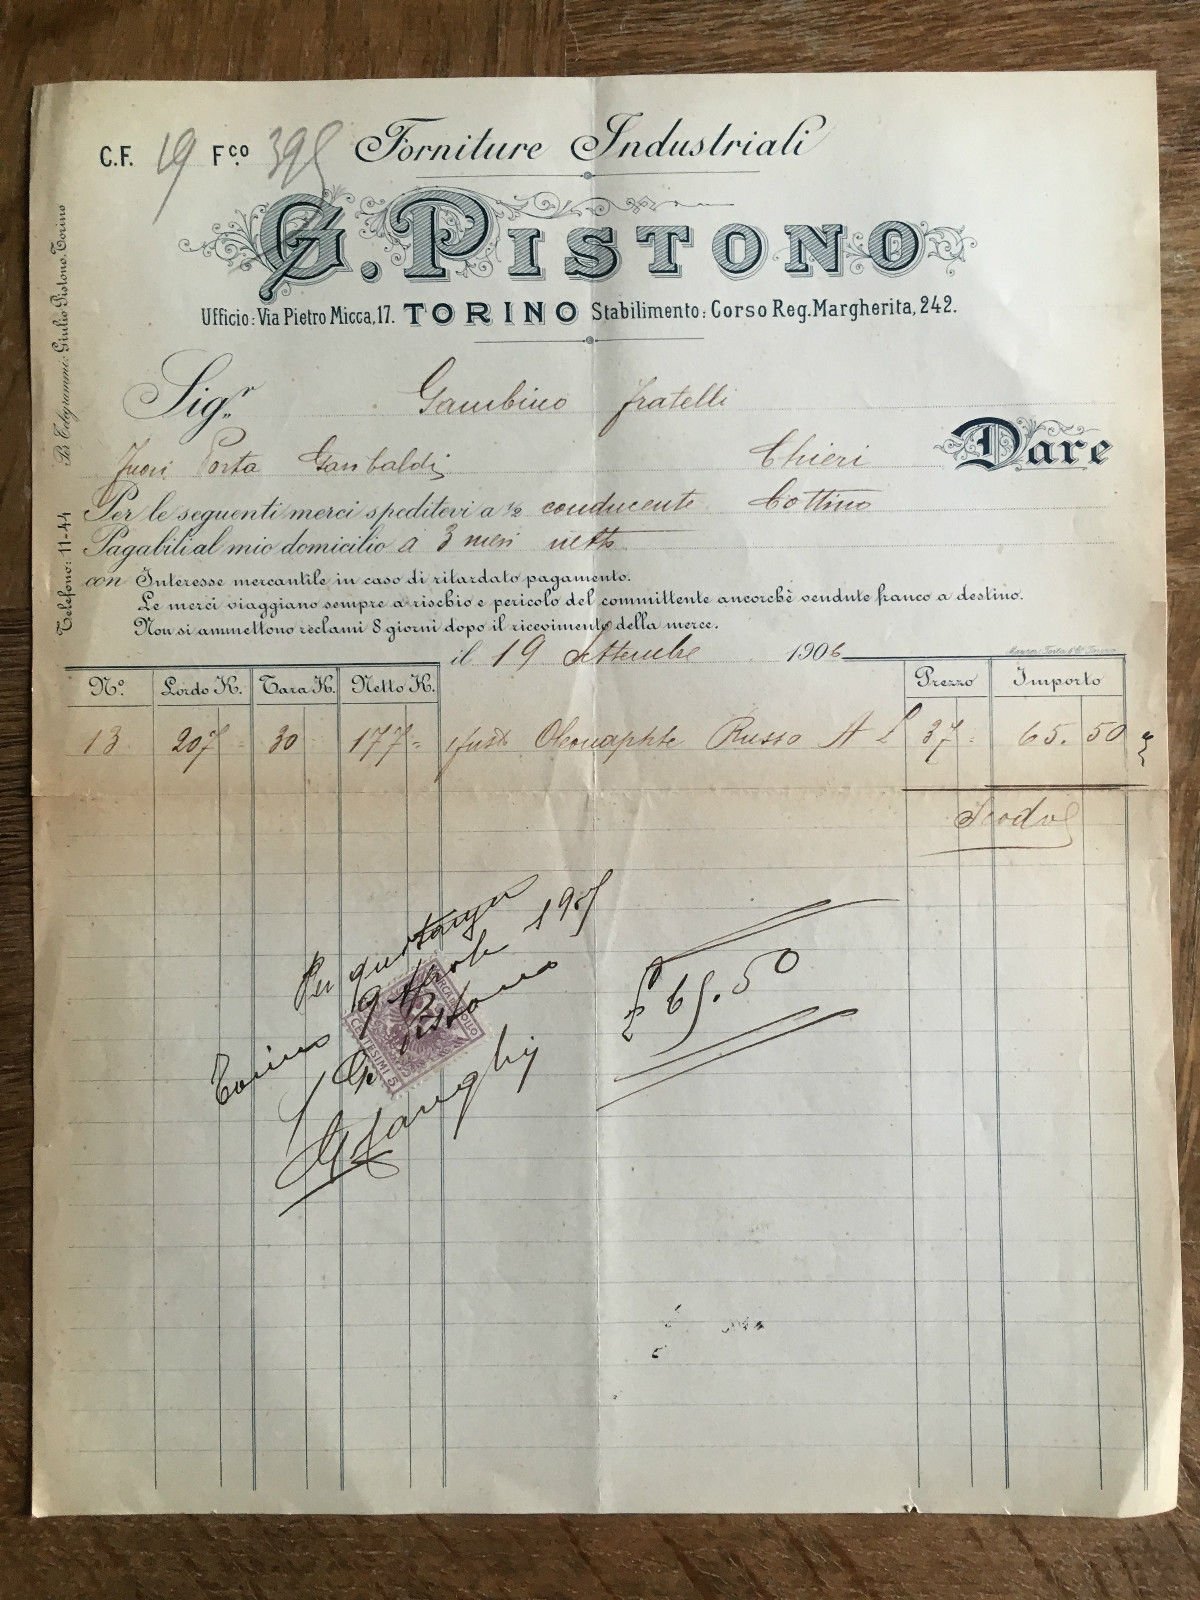 C.F. 19 Fco 395 Forniture Industriali
G. PISTONO
Ufficio: Via Pietro Micca, 17. TORINO Stabilimento: Corso Reg. Margherita, 242.
Per Telegrammi: Giulio Pistono, Torino
Telefono: 11-44
Sigr. Gambino fratelli
Fuori Porta Garibaldi Chieri Dare
Per le seguenti merci speditevi a ½ conducente Cottino
Pagabili al mio domicilio a 3 mesi netto
con Interesse mercantile in caso di ritardato pagamento.
Le merci viaggiano sempre a rischio e pericolo del committente ancorchè vendute franco a destino.
Non si ammettono reclami 8 giorni dopo il ricevimento della merce.
il 19 Settembre 1906
No. Lordo K. Tara K. Netto K. Prezzo Importo
13 207 = 30 177 = 1 fusto Oleonaphte Russo A L 37 = 65.50
Per quitanza
Torino 9 Aprile 1907
G. Pistono
£ 65.50
CENTESIMI 5